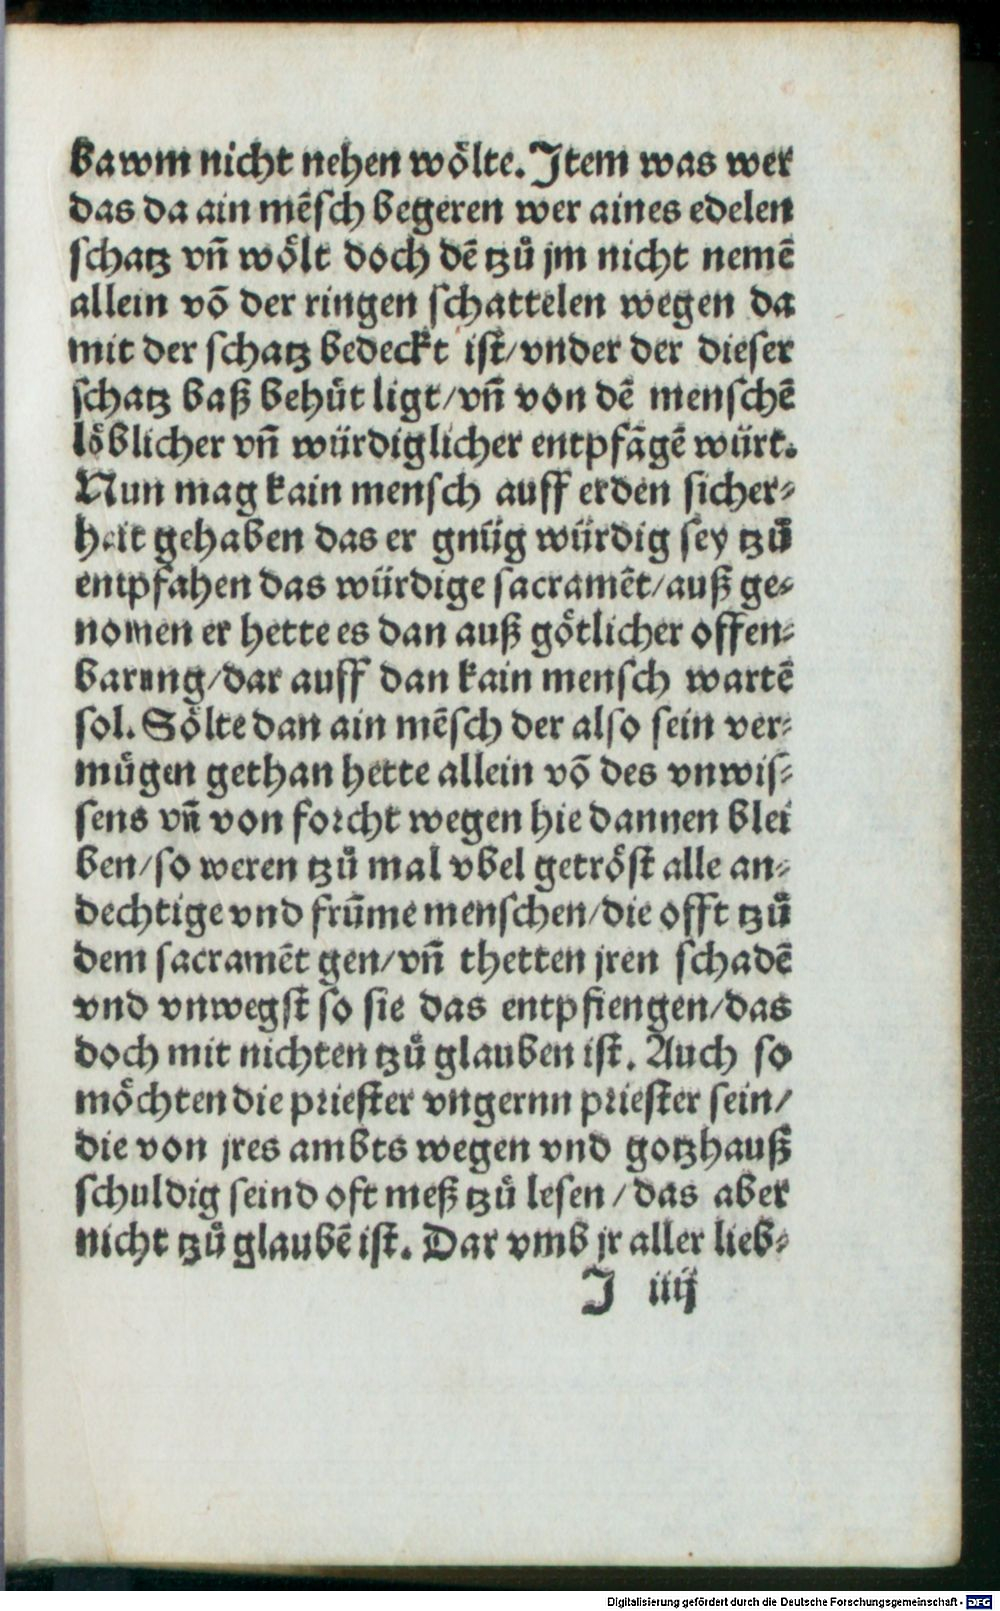 bawm nicht nehen wölte. Jtem was wer
das da ain mẽsch begeren wer aines edelen
schatz vñ wölt doch dẽ tzů jm nicht nemẽ
allein võ der ringen schattelen wegen da
mit der schatz bedeckt ist/vnder der dieser
schatz baß behüt ligt/vñ von dẽ menschẽ
löblicher vñ würdiglicher entpfãgẽ würt.
Nun mag kain mensch auff erden sicher⸗
heit gehaben das er gnüg würdig sey tzů
entpfahen das würdige sacramẽt/auß ge⸗
nomen er hette es dan auß götlicher offen⸗
barung/dar auff dan kain mensch wartẽ
sol. Sölte dan ain mẽsch der also sein ver⸗
mügen gethan hette allein võ des vnwis⸗
sens vñ von forcht wegen hie dannen blei
ben/so weren tzů mal vbel getröst alle an⸗
dechtige vnd frũme menschen/die offt tzů
dem sacramẽt gen/vñ thetten jren schadẽ
vnd vnwegst so sie das entpfiengen/das
doch mit nichten tzů glauben ist. Auch so
möchten die priester vngernn priester sein/
die von jres ambts wegen vnd gotzhauß
schuldig seind oft meß tzů lesen/das aber
nicht tzů glaubẽ ist. Dar vmb jr aller lieb⸗
J iiij
Digitalisierung gefördert durch die Deutsche Forschungsgemeinschaft - DFG